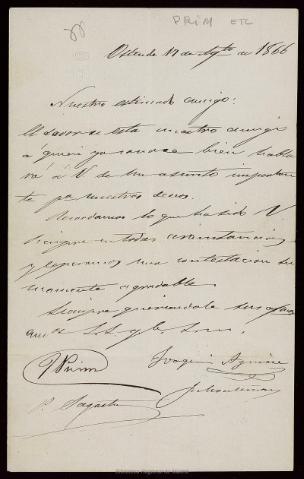 PRIM ETC
Ostende 17 de Agto de 1866
Nuestro estimado amigo:
El dador de esta nuestro amigo
a quien ya conoce bien habla
rá a V de un asunto importan
te pa nuestros deseos.
Recordamos lo que ha sido V
siempre en todas circunstancias
y esperamos una contestacion su
mamente agradable.
Siempre queriendole sus
am
J Prim
Joaquin Aguirre
P. Sagasta